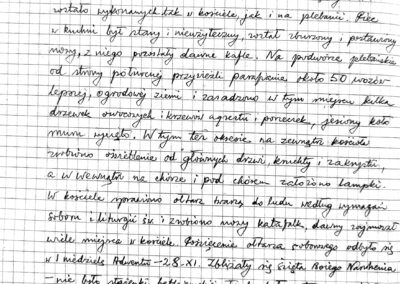 zostało wykonanych tak w kościele, jak i na plebanii. Piec
w kuchni był stary i nieużyteczny, został zburzony i postawiony
nowy, z niego pozostały dawne kafle. Na podwórze plebańskie
od strony północnej przywieźli parafianie około 50 wozów
lepszej, ogrodowej ziemi i zasadzono w tym miejscu kilka
drzewek owocowych i krzewów agrestu i porzeczek, jesiony koło
muru wycięto. W tym też okresie na zewnątrz kościoła
zrobiono oświetlenie od głównych drzwi, kruchty i zakrystii,
a w wewnątrz na chórze i pod chórem założono lampki.
W kościele sprawiono ołtarz twarzą do ludu według wymagań
Soboru i liturgii św. i zrobiono nowy katafalk, dawny zajmował
wiele miejsca w kościele. Poświęcenie ołtarza soborowego odbyło się
w I niedzielę Adwentu – 28.XI. Zbliżały się święta Bożego Narodzenia
– nie było stajenki